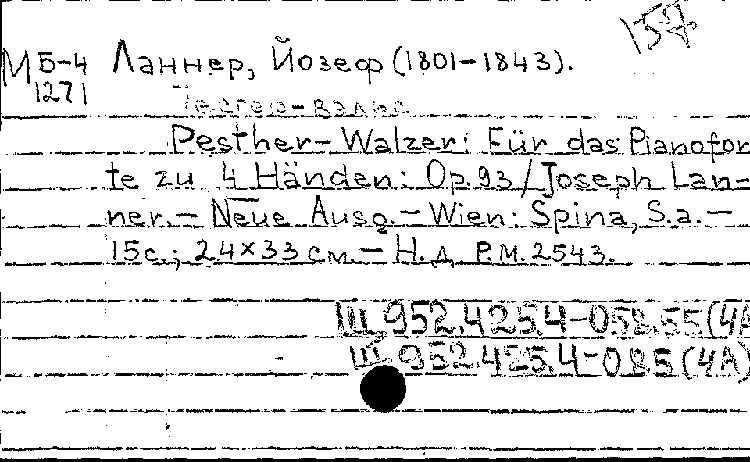 157
М Б-4 Ланнер, Йозеф (1801-1843).
1271
Pesther-Walzer: Für das Pianofor
te zu 4 Händen: Op.93/Joseph Lan-
ner.- Neue Ausg.- Wien: Spina, S.a.-
15с.; 24×33 см.- Н.д. P.M.2543.
Ш 952.4254-058.55(4А
Ш 952.4254-085(4А)